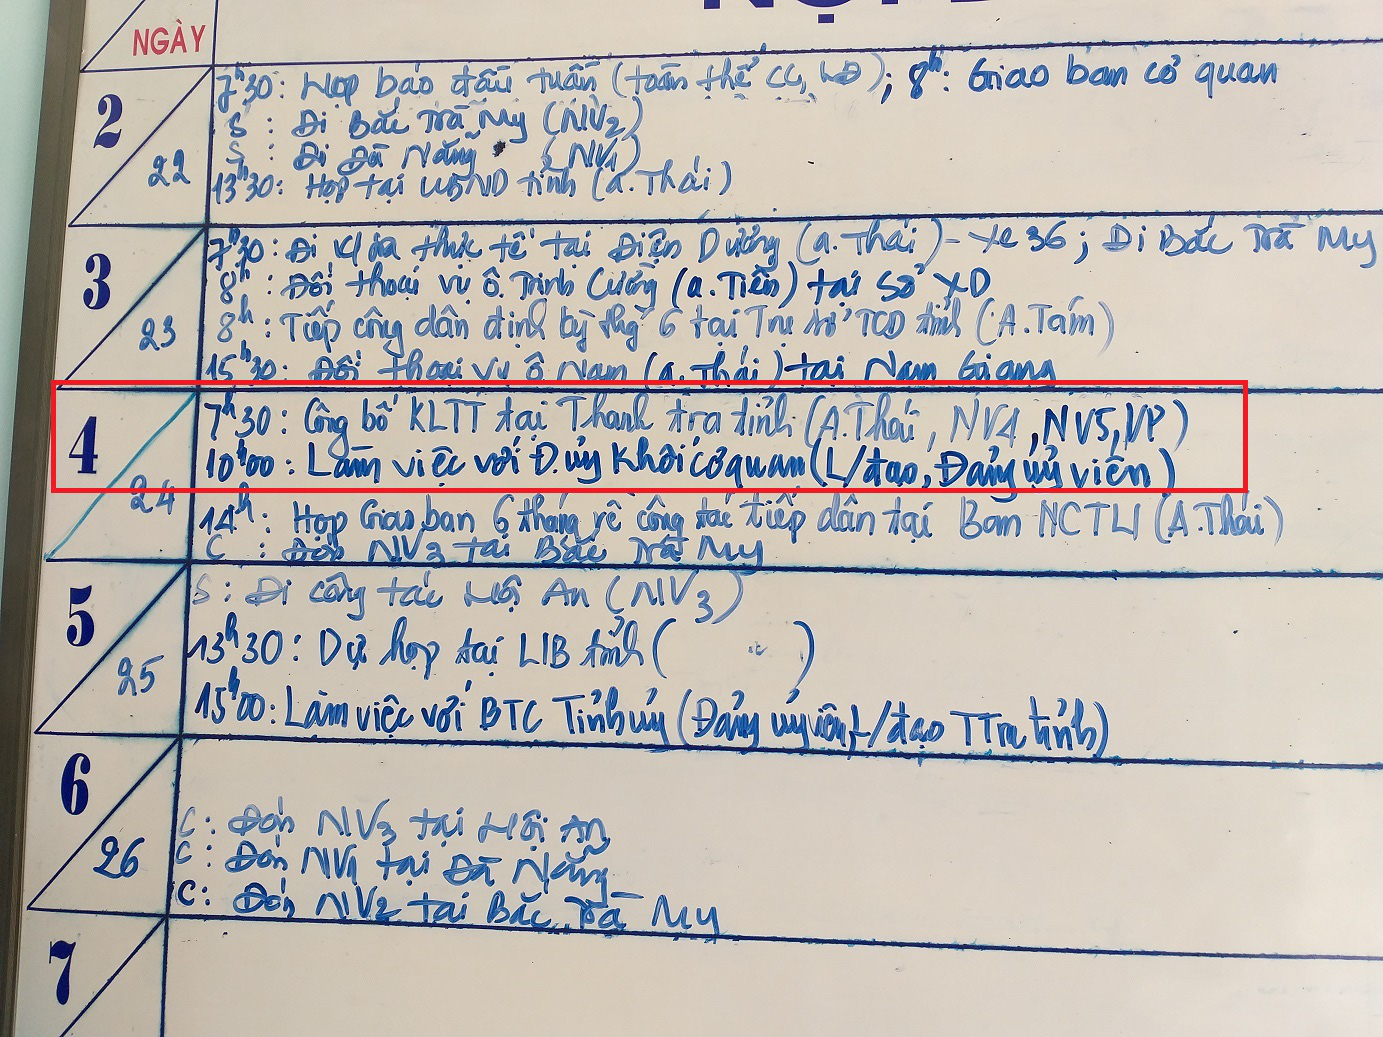 NGÀY
2
22
7h30: Họp báo đầu tuần (toàn thể CC, LĐ); 8h: Giao ban cơ quan
S : Đi Bắc Trà My (NV2)
S : Đi Đà Nẵng (NV1)
13h30: Họp tại UBND tỉnh (a.Thái)
3
23
7h30: Đi K/tra thực tế tại Điện Dương (a.Thái) - xe 36; Đi Bắc Trà My
8h: Đối thoại vụ ô.Trinh Cường (a.Tiễn) tại Sở XD
8h: Tiếp công dân định kỳ thg 6 tại Trụ sở TCD tỉnh (A.Tám)
15h30: Đối thoại vụ ô Nam (a.Thái) tại Nam Giang
4
24
7h30: Công bố KLTT tại Thanh tra tỉnh (A.Thái, NV4, NV5, VP)
10h00: Làm việc với Đ.ủy Khối cơ quan (L/đạo, Đảng ủy viên)
14h: Họp Giao ban 6 tháng về công tác tiếp dân tại Ban NCTU (A.Thái)
C : Đón NV3 tại Bắc Trà My
5
25
S: Đi công tác Hội An (NV3)
13h30: Dự họp tại UB tỉnh ( )
15h00: Làm việc với BTC Tỉnh ủy (Đảng ủy viên, L/đạo TTra tỉnh)
6
26
C: Đón NV3 tại Hội An
C: Đón NV1 tại Đà Nẵng
C: Đón NV2 tại Bắc Trà My
7